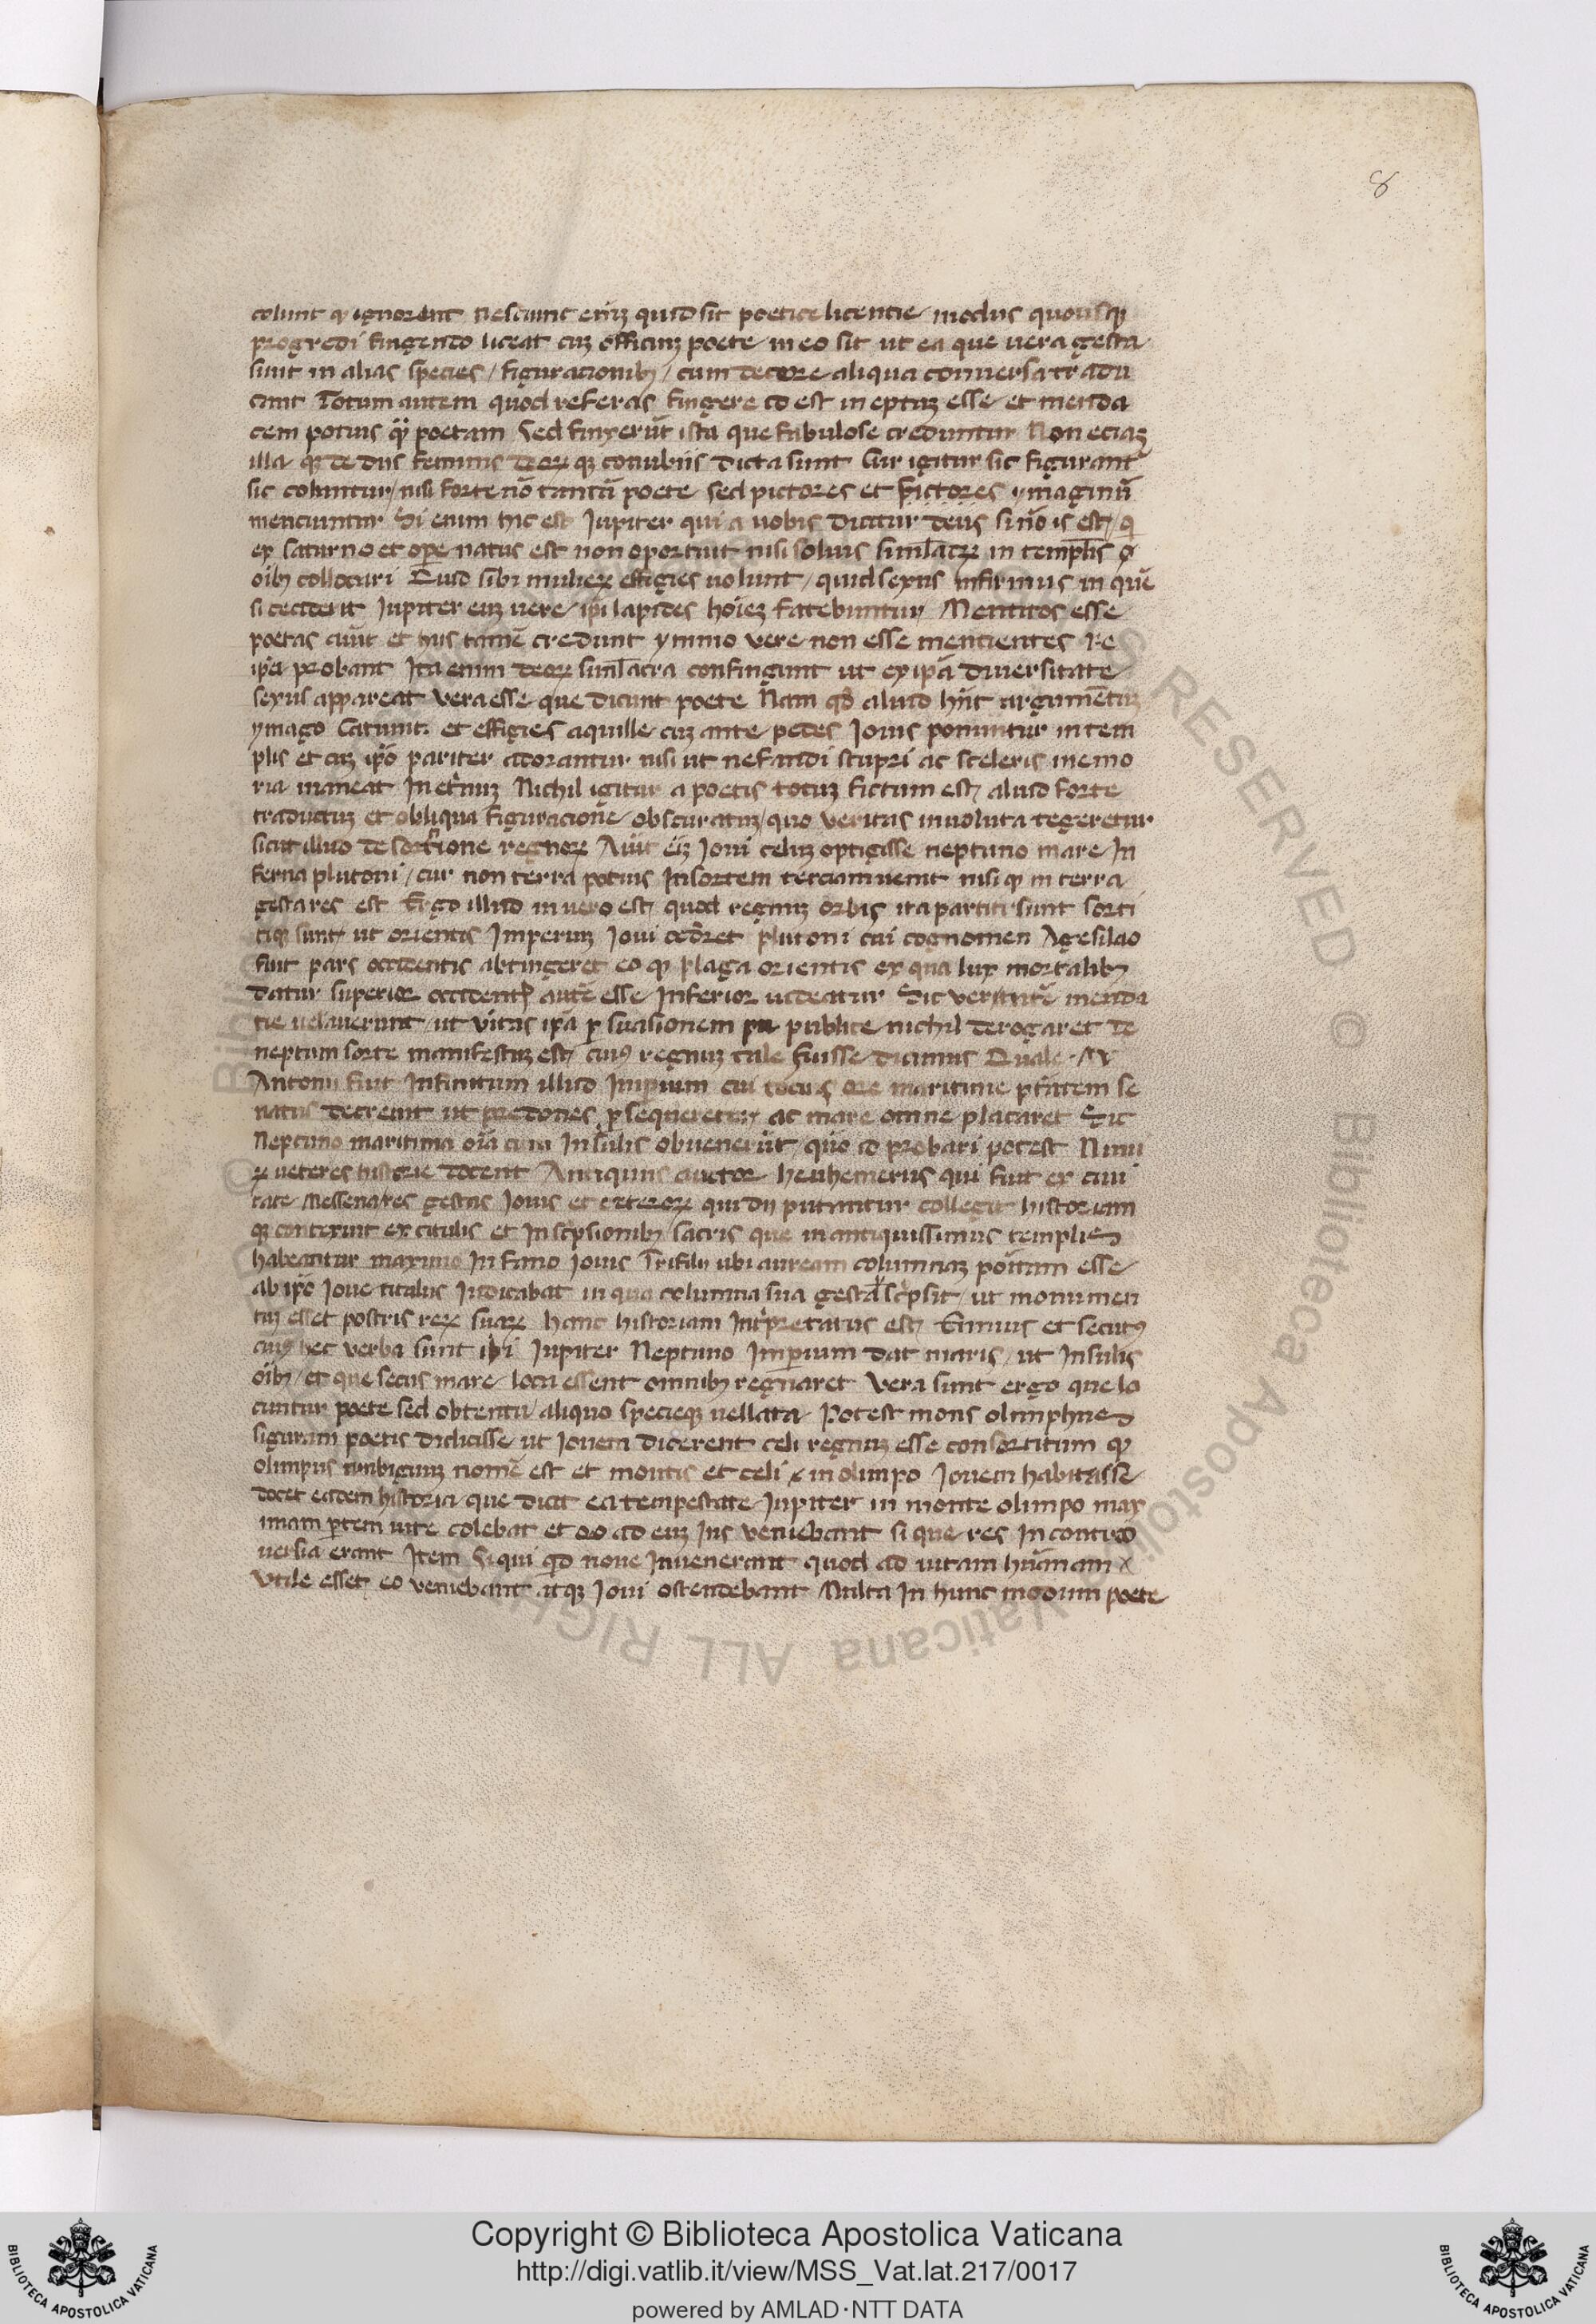 8
colunt qꝫ ignorent nesciunt enīꝫ quid sit poetice licentie modus quousqꝫ
progredi fingendo liceat cuꝫ officiuꝫ poete in eo sit ut ea que uera gesta
sunt in alias species / figuracionibꝫ / cum decore aliqua conuersa tradu
cant Totum autem quod referas fingere id est ineptuꝫ esse et menda
cem potius qͣꝫ poetam Sed finxerūt ista que fabulose creduntur Non eciaꝫ
illa qꝫ de diis feminis deoꝝ qꝫ conubiis dicta sunt Cur igitur sic figurant
sic coluntur / nisi forte nō tantū poete sed pictores et fictores ymaginū
menciuntur Si enim hic est Jupiter qui a uobis dicitur deus si nō is est / qi
ex saturno et ope natus est non oportuit nisi solius simlacꝝ in templis
oībꝫ collocari Quid sibi mulieꝝ effigies uolunt / quid sexus infirmus in quē
si ceciderit Jupiter euꝫ uere / ipi lapides hoīeꝫ fatebuntur Mentitos esse
poetas aiūt et hiis tamē credunt ymmo vere non esse mentientes Re
ipa probant Ita enim deoꝝ simlacra confingunt ut ex ipā diuersitate
sexus appareat vera esse que dicunt poete Nam qd aliud hnt argumētuꝫ
ymago Catamit et effigies aquille cuꝫ ante pedes Jouis ponuntur in tem
plis et cuꝫ ipo pariter adorantur nisi ut nefandi stupri ac sceleris memo
ria maneat In eternuꝫ Nichil igitur a poetis totuꝫ fictum est aliud forte
traductuꝫ et obliqua figuracione obscuratuꝫ / quo veritas inuoluta tegeretur
sicut illud de sortitione regnoꝝ Aiūt eīꝫ Joui celuꝫ optigisse neptuno mare In
ferna plutoni / cur non terra potius In sortem terciam uenit nisi qꝫ in terra
gesta res est Ergo illud in uero est quod regnuꝫ orbis ita partiti sunt sorti
tiqꝫ sunt ut orientis Imperiuꝫ Joui cederet plutoni cui cognomen Agesilao
fuit pars occidentis abtingeret eo qꝫ plaga orientis ex qua lux mortalibꝫ
datur superior occidentis autē esse Inferior uideatur Sic veritatē menda
cie uelauerunt / ut vitas ipā psuasionem pu publice nichil derogaret De
neptuni sorte manifestuꝫ est cuiꝰ regnuꝫ tale fuisse dicimus Quale M
Antonii fuit Infinitum illud Impium cui tocius ore maritime ptātem se
natus decreuit ut predones psequeretur ac mare omne placaret Sic
Neptuno maritima oīa cum Insulis obuenerūt / quō id probari potest Nimi
ꝝ ueteres historie docent Antiquus auctor heuhemerus qui fuit ex ciui
tate Messena / res gestas Jouis et ceteroꝝ qui dij putantur collegit historiam
qꝫ contexuit ex titulis et Inscpsionibꝫ sacris que in antiquissimis templis
habeantur maxime In fano Jouis Trifilij ubi auream columnaꝫ poitam esse
ab ipo Joue titulus Indicabat in qua columna sua gesta scpsit / ut monumen
tuꝫ esset postris reꝝ suaꝝ hanc historiam Intpretatus est Ennius et secutꝰ
cuiꝰ hec verba sunt ibi Jupiter Neptuno Imperium dat maris / ut Insulis
oībꝫ / et que secus mare loca essent omnibꝫ regnaret Vera sunt ergo que lo
cuntur poete sed obtentu / aliquo specieqꝫ uellata Potest mons olimphus
figuram poetis dedicisse ut Jouem dicerent celi regnuꝫ esse consortitum qꝫ
olimpus ambiguuꝫ nomē est et montis et celi in olimpo Jouem habitasse
docet eadem historia / que dicit ea tempestate Jupiter in monte olimpo max
imam ptem uite colebat et eo ad euꝫ Ius veniebant si que res In contro
uersia erant Item Si qui qd noue Inuenerant quod ad uitam hūmanam
Utile esset eo veniebant atqꝫ Joui ostendebant Multa In hunc modum poete
Copyright © Biblioteca Apostolica Vaticana
http://digi.vatlib.it/view/MSS_Vat.lat.217/0017
powered by AMLAD·NTT DATA